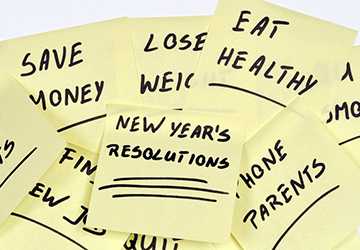 SAVE
MONEY
LOSE
WEIG
EAT
HEALTHY
NEW YEAR'S
RESOLUTIONS
FIN
EW J
HONE
PARENTS
QUIT
MO